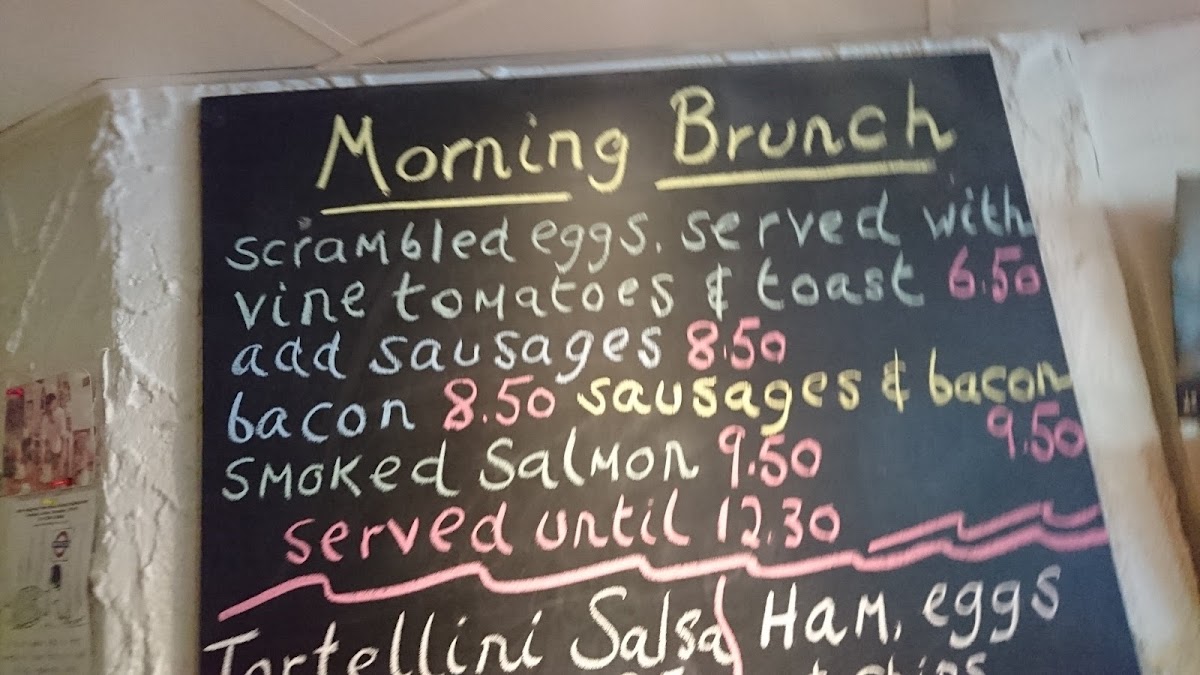 Morning Brunch
scrambled eggs. served with
vine tomatoes & toast 6.50
add sausages 8.50
bacon 8.50 sausages & bacon
9.50
smoked salmon 9.50
served until 12.30
Tortellini Salsa
Ham, eggs
chips